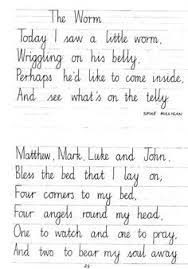 The Worm
Today I saw a little worm,
Wriggling on his belly.
Perhaps he'd like to come inside,
And see what's on the telly
SPIKE MILLIGAN
Matthew, Mark, Luke and John,
Bless the bed that I lay on,
Four corners to my bed,
Four angels round my head,
One to watch and one to pray,
And two to bear my soul away